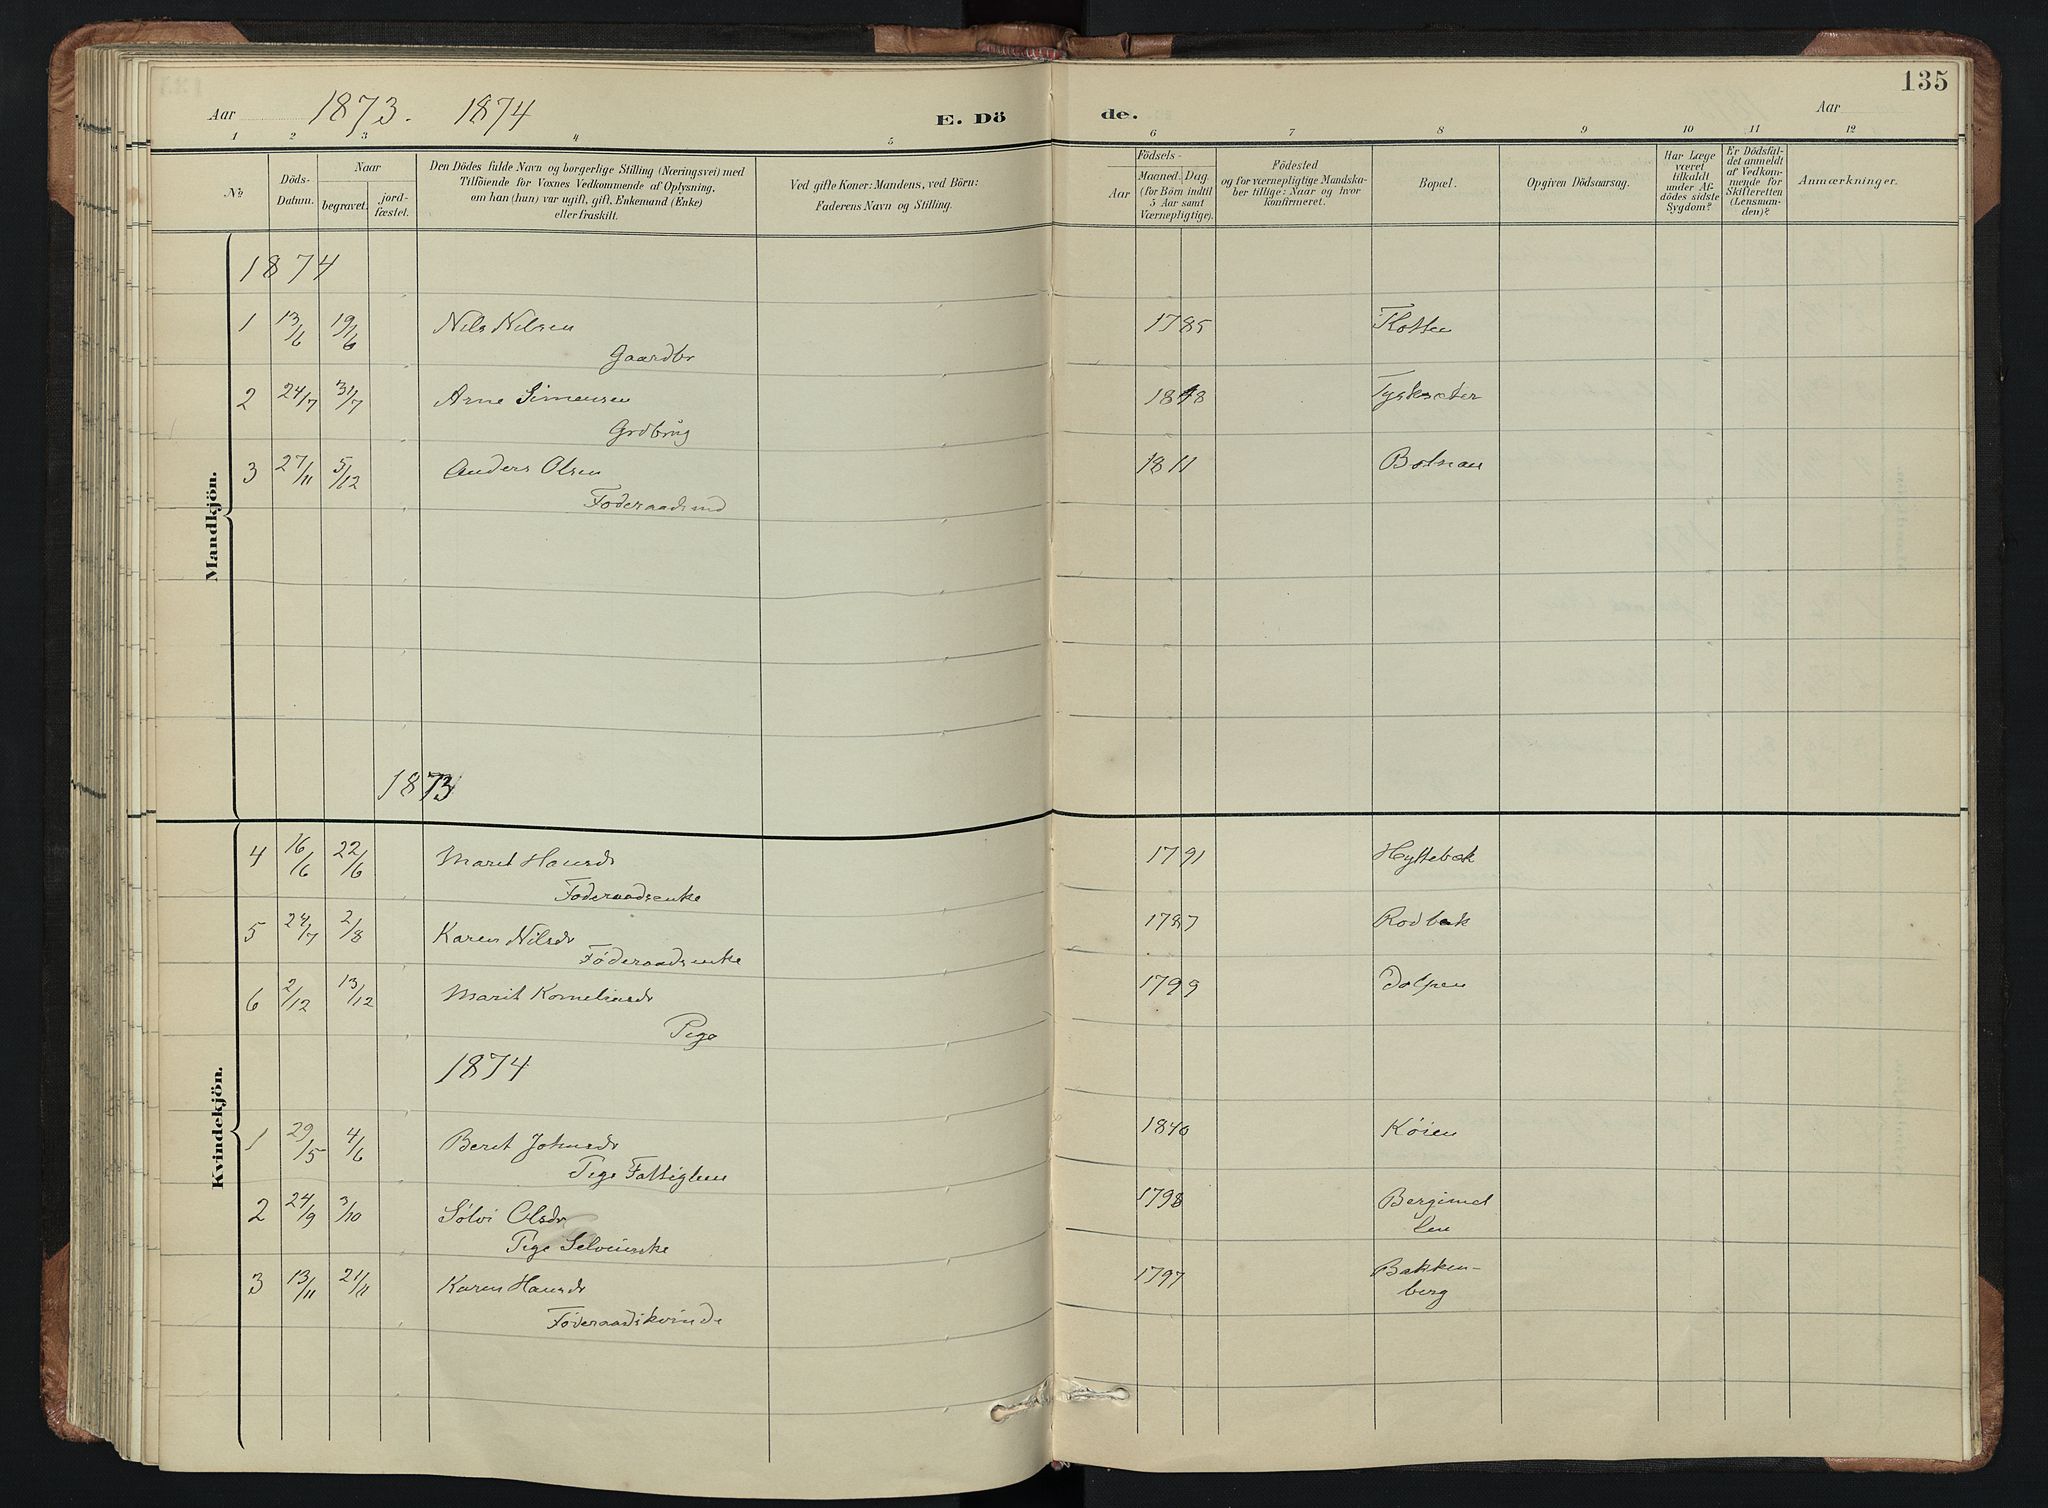 135
Aar 1873. 1874 E. Dö de. Aar
1 2 3 4 5 6 7 8 9 10 11 12
No
Döds-Datum.
Naar
begravet.
jord-fæstet.
Den Dödes fulde Navn og borgerlige Stilling (Næringsvei) med
Tilföiende for Voxnes Vedkommende af Oplysning,
om han (hun) var ugift, gift, Enkemand (Enke)
eller fraskilt.
Ved gifte Koner: Mandens, ved Börn:
Faderens Navn og Stilling.
Födsels-
Aar
Maaned. Dag.
(for Börn indtil
5 Aar samt
Værnepligtige).
Födested
og for værnepligtige Mandska-
ber tillige: Naar og hvor
konfirmeret.
Bopæl.
Opgiven Dödsaarsag.
Har Læge
været
tilkaldt
under Af-
dödes sidste
Sygdom?
Er Dödsfal-
det anmeldt
af Vedkom-
mende for
Skifteretten
(Lensman-
den)?
Anmærkninger.
Mandkjön.
1874
1 13/6 19/6 Nils Nilsen 1785
Gaardbr
2 24/7 31/7 Arne Simensen 1818 Tyskesæter
Grdbrug
3 27/11 5/12 Anders Olsen 1811 Botnan
Foderaadsmd
1873
Kvindekjön.
4 16/6 22/6 Marit Hansdr 1791 Hyttebæk
Foderaadsenke
5 24/7 2/8 Karen Nilsdr 1787 Rodbæk
Føderaadsenke
6 2/12 13/12 Marit Korneliusdr 1799 Dolpen
Pige
1874
1 29/5 4/6 Berit Johnsdr 1840 Køien
Pige Fattiglem
2 24/9 3/10 Sølvi Olsdr 1798 Bergimel
len
Pige Selveierske
3 13/11 21/11 Karen Hansdr 1797 Bakken-
berg
Føderaadskvinde